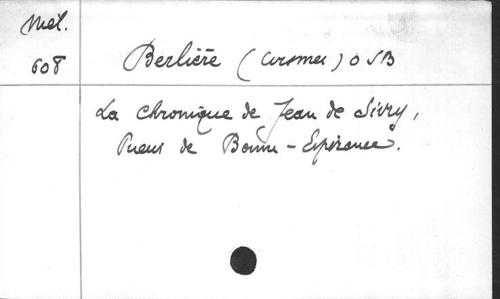 Mél.
608
Berlière (Ursmer) O SB
La chronique de Jean de Sivry,
Prieur de Bonne-Espérance.